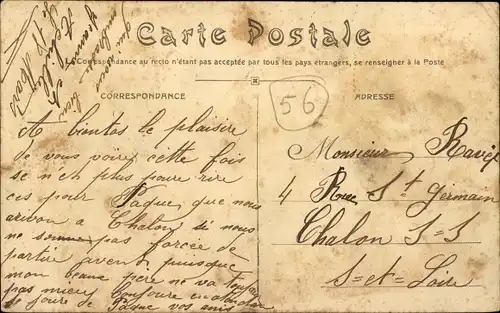 Carte Postale
Correspondance au recto n'étant pas acceptée par tous les pays étrangers, se renseigner à la Poste
CORRESPONDANCE
ADRESSE
56
A bientos le plaisire
de vous voire, cette fois
se n'eh plus poure rire
ces pour Paque que nous
arivon a Chalon, si nous
ne somme pas forcée de
partire aven puisque
mon beaux père ne va toujou
pas mieux
le joure de Paque vos amis
qui vous
embrasse
bien
Achille
Monsieur Ravey
4 Rue St Germain
Chalon S-S
S-et-Loire